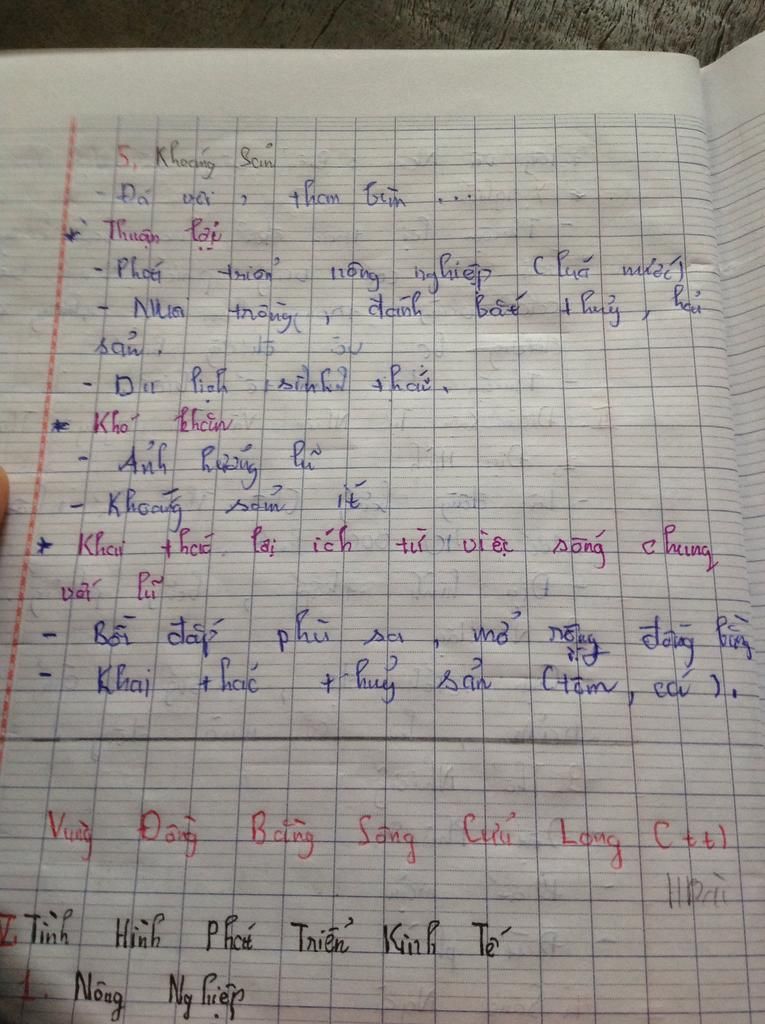 5, Khoáng Sản
- Đá vôi, than bùn ...
* Thuận lợi
- Phát triển nông nghiệp (lúa nước)
- Nuôi trồng, đánh bắt thuỷ, hải
sản.
- Du lịch sinh thái.
* Khó khăn
- Ảnh hưởng lũ
- Khoáng sản ít
* Khai thác lợi ích từ việc sống chung
với lũ
- Bồi đắp phù sa, mở rộng đồng bằng
- Khai thác thuỷ sản (tôm, cá).
Vùng Đồng Bằng Sông Cửu Long (tt)
Tình Hình Phát Triển Kinh Tế
1. Nông Nghiệp